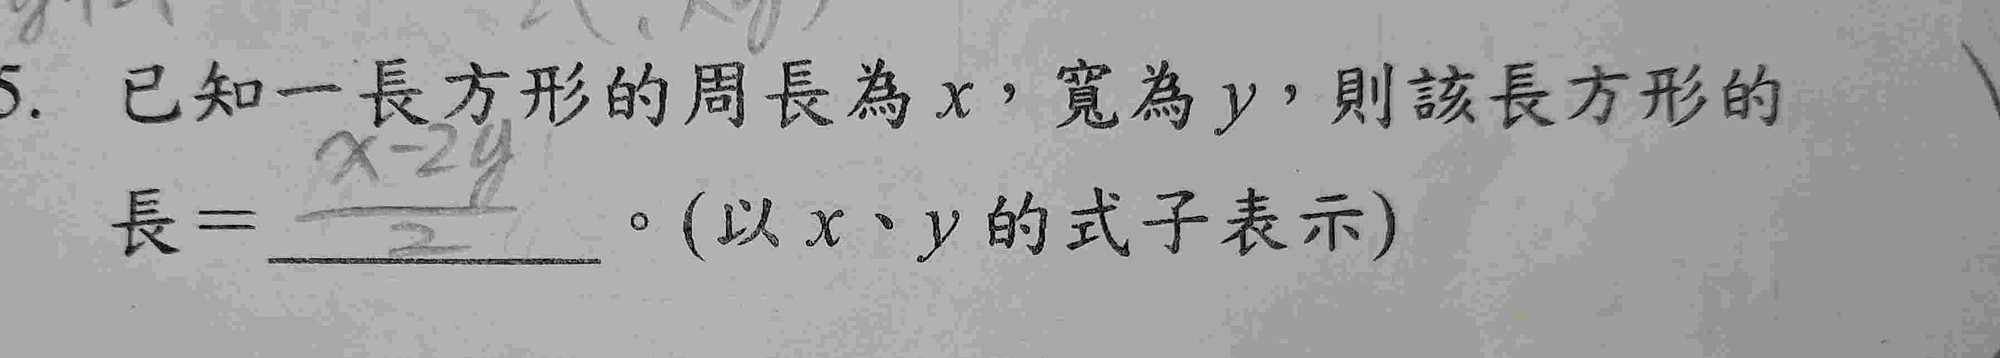 5. 已知一長方形的周長為 x，寬為 y，則該長方形的
x-2y
長=
2
。(以 x、y 的式子表示)